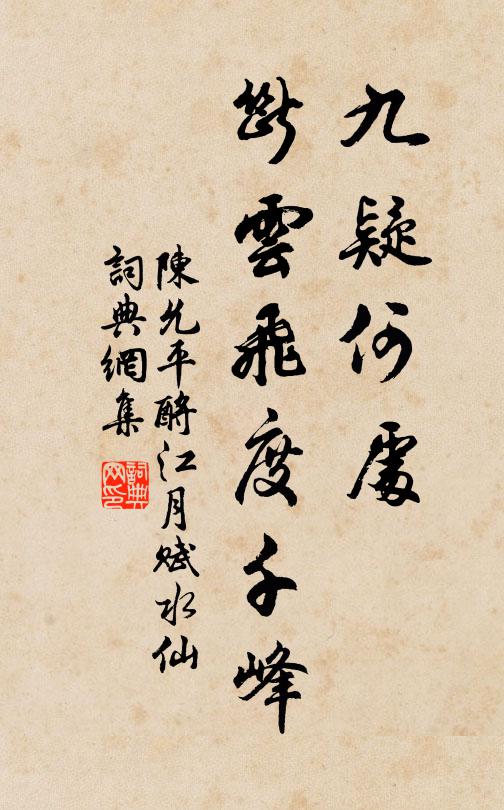 九疑何處
斷雲飛度千峰
陳允平酹江月賦水仙
詞典網集
詞典网印